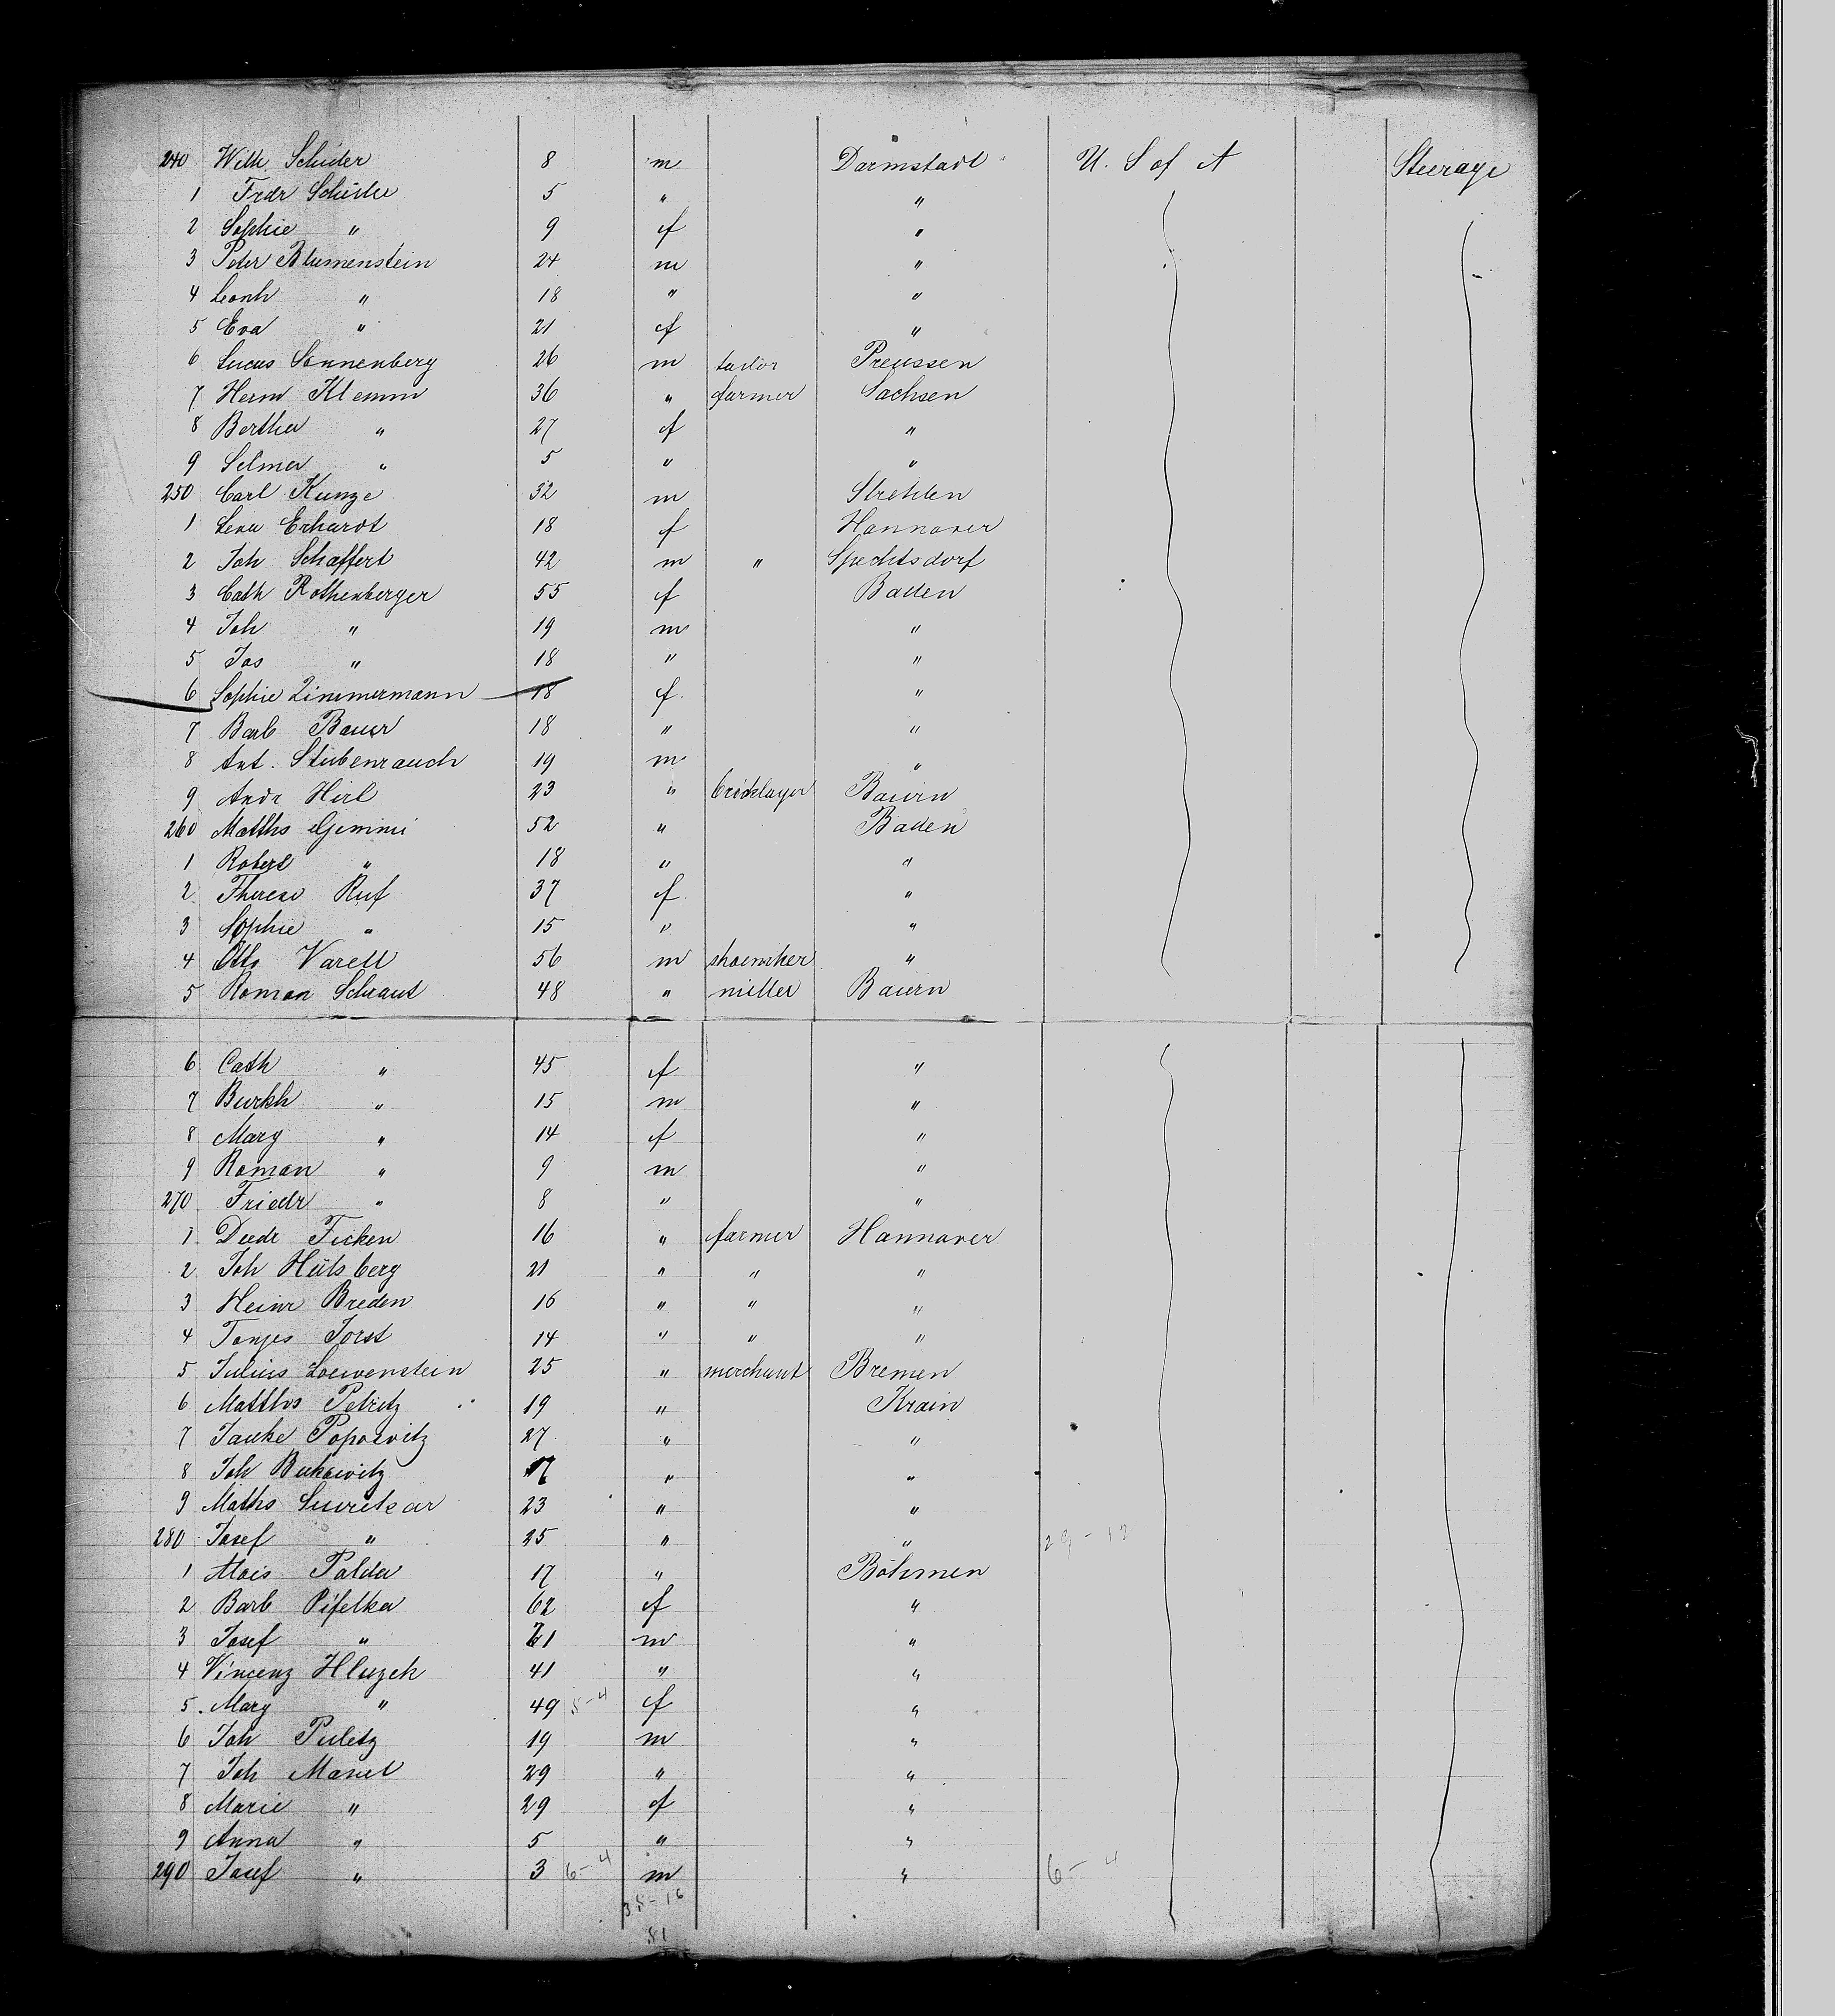 240 Wilh. Schüler 8 m Darmstadt U. S of A Steerage
1 Frdr Schüler 5 " "
2 Sophie " 9 f "
3 Peter Blumenstein 24 m "
4 Leonh " 18 " "
5 Eva " 21 f "
6 Lucas Sonnenberg 26 m tailor Preussen
7 Herm Klemm 36 " farmer Sachsen
8 Bertha " 27 f "
9 Selma " 5 " "
250 Carl Kunze 32 m Strehlen
1 Lena Erhardt 18 f Hannover
2 Joh Schaffert 42 m " Spechtsdorf
3 Cath Rothenberger 55 f Baden
4 Joh " 19 m "
5 Jos " 18 " "
6 Sophie Zimmermann 18 f "
7 Barb Bauer 18 " "
8 Ant. Stubenrauch 19 m "
9 Andr Hirl 23 " bricklayer Baiern
260 Matths Gemmi 52 " Baden
1 Robert " 18 " "
2 Therese Ruf 37 f "
3 Sophie " 15 " "
4 Otto Varell 56 m shoemker "
5 Roman Schraut 48 " miller Baiern
6 Cath " 45 f "
7 Burkh " 15 m "
8 Mary " 14 f "
9 Roman " 9 m "
270 Friedr " 8 " "
1 Diedr Ficken 16 " farmer Hannover
2 Joh Hülsberg 21 " " "
3 Heinr Breden 16 " " "
4 Tonjes Jorst 14 " " "
5 Julius Loewenstein 25 " merchant Bremen
6 Matths Petritz 19 " Krain
7 Janke Popowitz 27 " "
8 Joh Bukowitz 17 " "
9 Maths 23 " "
280 Josef " 25 " " 29-12
1 Alois Palda 17 " Böhmen
2 Barb Pifelka 62 f "
3 Josef " 21 m "
4 Vincenz Hluzek 41 " "
5 Mary " 49 5-4 f "
6 Joh Puletz 19 m "
7 Joh Manel 29 " "
8 Marie " 29 f "
9 Anna " 5 " "
290 Josef " 3 6-4 m " 6-4
35-16
81